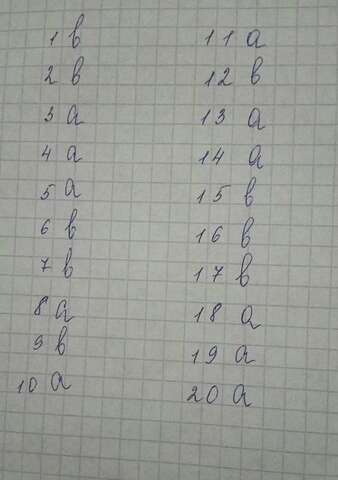 1 в
2 в
3 а
4 а
5 а
6 в
7 в
8 а
9 в
10 а
11 а
12 в
13 а
14 а
15 в
16 в
17 в
18 а
19 а
20 а